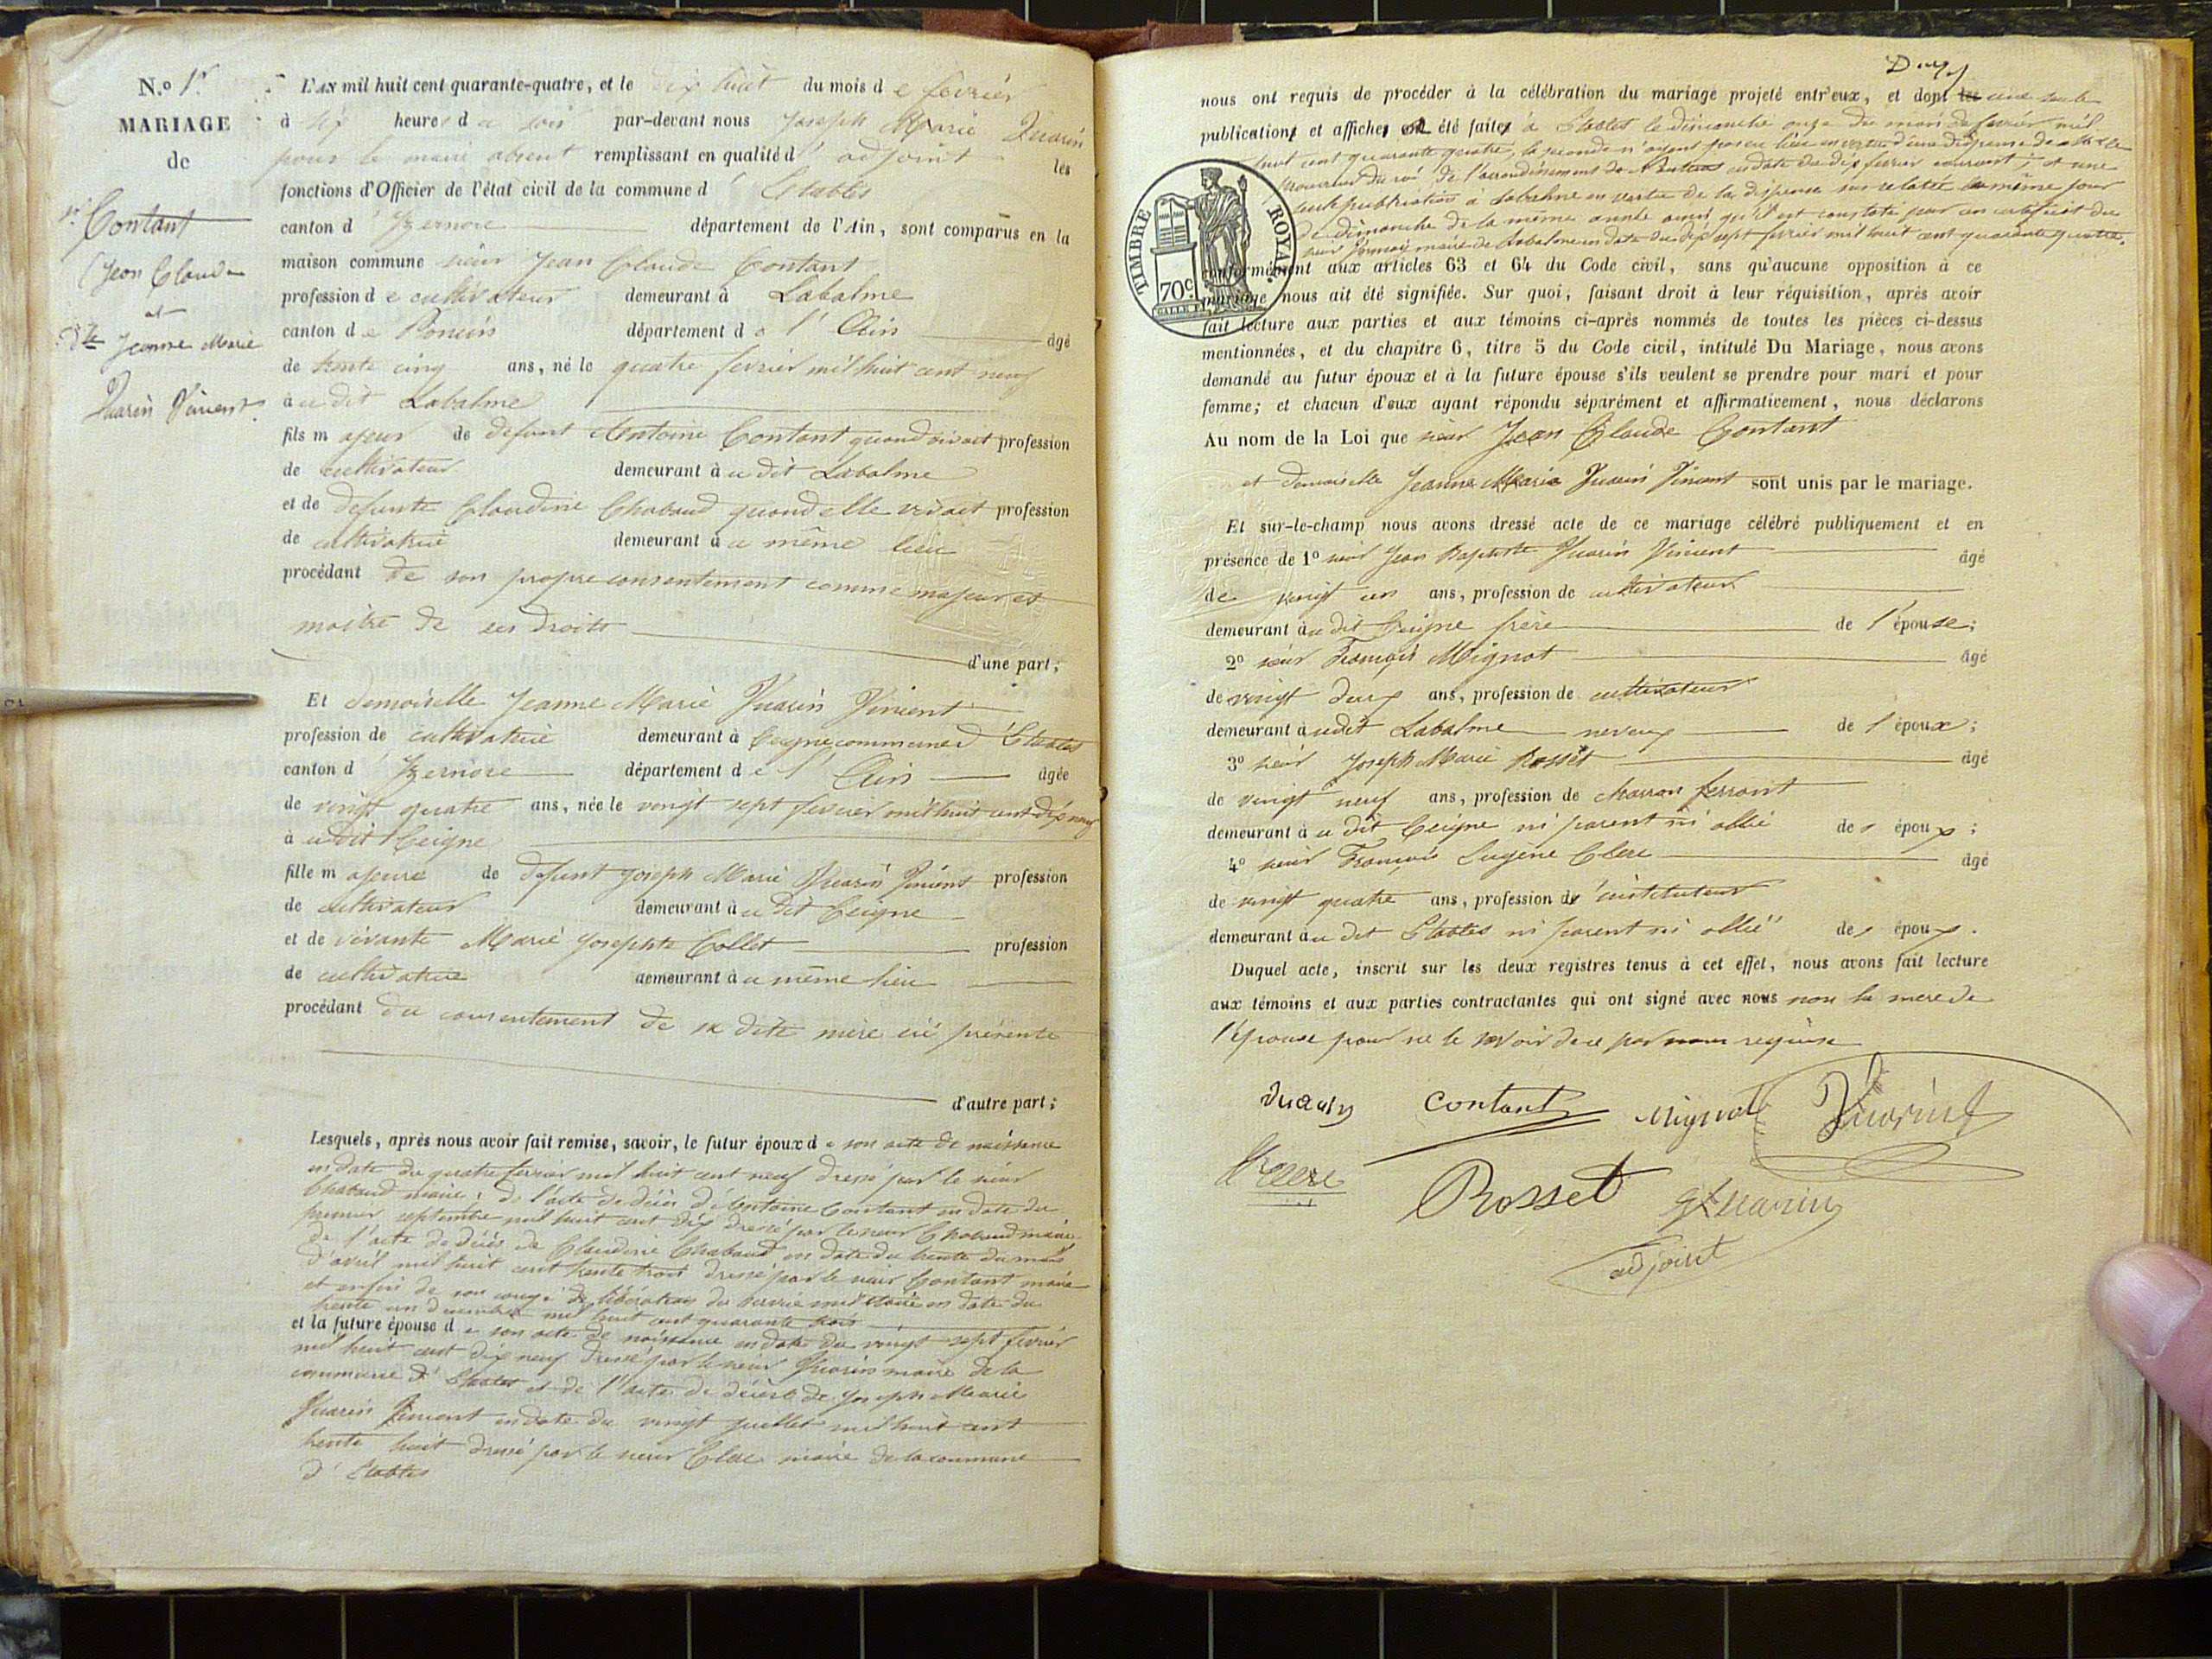 N.o 1.r
MARIAGE
de
Sr. Contant
(Jean Claude
et
Dlle Jeanne Marie
Vuarin Vincent
L'AN mil huit cent quarante-quatre, et le dix huit du mois de fevrier
à six heures du soir par-devant nous Joseph Marie Vuarin
pour le maire absent remplissant en qualité d'adjoint les
fonctions d'Officier de l'état civil de la commune d'Etables
canton d'Izernore département de l'Ain, sont comparus en la
maison commune sieur Jean Claude Contant
profession de cultivateur demeurant à Labalme
canton de Poncin département de l'Ain âgé
de trente cinq ans, né le quatre fevrier mil huit cent neuf
à udit Labalme
fils majeur de defunt Antoine Contant quand vivait profession
de cultivateur demeurant à udit Labalme
et de defunte Claudine Chabaud quand elle vivait profession
de cultivatrice demeurant à u même lieu
procédant de son propre consentement comme majeur et
maitre de ses droits
d'une part;
Et demoiselle Jeanne Marie Vuarin Vincent
profession de cultivatrice demeurant à Ceigne commune d'Etables
canton d'Izernore département de l'Ain âgée
de vingt quatre ans, née le vingt sept fevrier mil huit cent dix neuf
à udit Ceigne
fille majeure de defunt Joseph Marie Vuarin Vincent profession
de cultivateur demeurant à udit Ceigne
et de vivante Marie Josephte Collet profession
de cultivatrice demeurant à u même lieu
procédant du consentement de sa dite mère ici présente
d'autre part;
Lesquels, après nous avoir fait remise, savoir, le futur époux de son acte de naissance
en date du quatre fevrier mil huit cent neuf dressé par le sieur
Chabaud maire; de l'acte de décès d'Antoine Contant en date du
premier septembre mil huit cent dix dressé par le sieur Chabaud maire
de l'acte de décès de Claudine Chabaud en date du trente du mois
d'avril mil huit cent trente trois dressé par le sieur Contant maire
et enfin de son congé de libération du service militaire en date du
trente un decembre mil huit cent quarante trois
et la future épouse de son acte de naissance en date du vingt sept fevrier
mil huit cent dix neuf dressé par le sieur Vuarin maire de la
commune d'Etables et de l'acte de décès de Joseph Marie
Vuarin Vincent en date du vingt juillet mil huit cent
trente huit dressé par le sieur Clerc maire de la commune
d'Etables
nous ont requis de procéder à la célébration du mariage projeté entr'eux, et dont les une seule
publication et affiche a été faite à Etables le dimanche onze du mois de fevrier mil
huit cent quarante quatre, la seconde n'ayant pas eu lieu en vertu d'une dispense de Mr le
procureur du roi de l'arrondissement de Nantua en date du dix fevrier courant; et une
seule publication à Labalme en vertu de la dispense sus relatée le même jour
de dimanche de la même année ainsi qu'il est constaté par un certificat du
sieur maire de Labalme en date du dix sept fevrier mil huit cent quarante quatre.
TIMBRE ROYAL
70c
conformément aux articles 63 et 64 du Code civil, sans qu'aucune opposition à ce
mariage nous ait été signifiée. Sur quoi, faisant droit à leur réquisition, après avoir
fait lecture aux parties et aux témoins ci-après nommés de toutes les pièces ci-dessus
mentionnées, et du chapitre 6, titre 5 du Code civil, intitulé Du Mariage, nous avons
demandé au futur époux et à la future épouse s'ils veulent se prendre pour mari et pour
femme; et chacun d'eux ayant répondu séparément et affirmativement, nous déclarons
Au nom de la Loi que sieur Jean Claude Contant
et demoiselle Jeanne Marie Vuarin Vincent sont unis par le mariage.
Et sur-le-champ nous avons dressé acte de ce mariage célébré publiquement et en
présence de 1o sieur Jean Baptiste Vuarin Vincent âgé
de vingt un ans, profession de cultivateur
demeurant à udit Ceigne frère de l'épouse;
2o sieur François Mignot âgé
de vingt deux ans, profession de cultivateur
demeurant à udit Labalme neveux de l'époux;
3o sieur Joseph Marie Rosset âgé
de vingt neuf ans, profession de charron ferrant
demeurant à udit Ceigne ni parent ni allié des époux;
4o sieur François Eugène Clerc âgé
de vingt quatre ans, profession d'instituteur
demeurant à udit Etables ni parent ni allié des époux.
Duquel acte, inscrit sur les deux registres tenus à cet effet, nous avons fait lecture
aux témoins et aux parties contractantes qui ont signé avec nous non la mere de
l'épouse pour ne le savoir de ce par nous requise
Vuarin contant Mignot Vuarin
Clerc Rosset Vuarin
adjoint